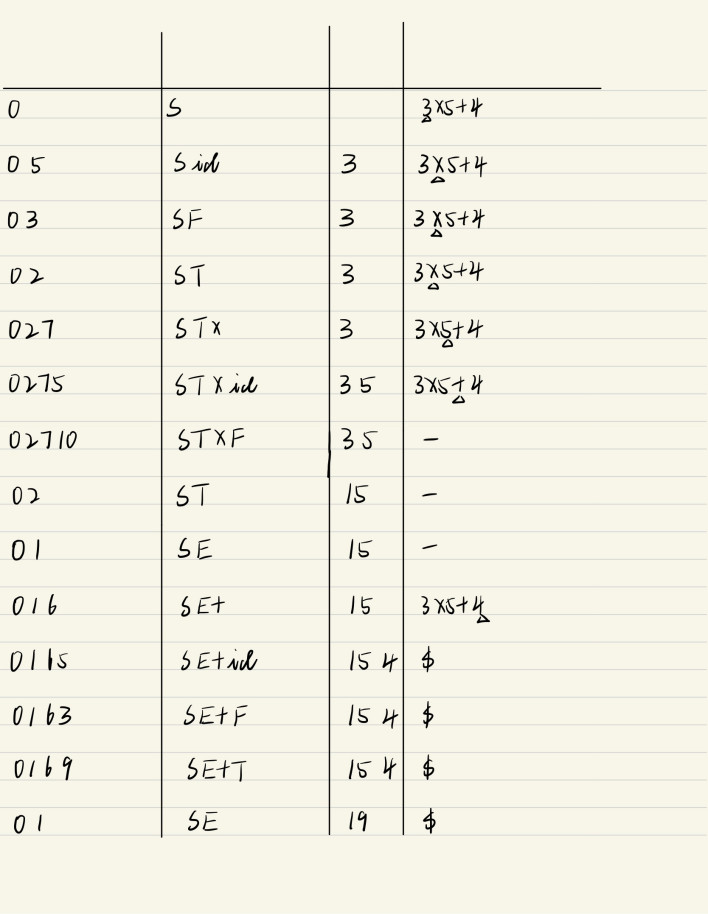 0 S 3×5+4
0 5 S id 3 3×5+4
0 3 SF 3 3×5+4
0 2 ST 3 3×5+4
027 ST× 3 3×5+4
0275 ST×id 3 5 3×5+4
02710 ST×F 3 5 -
02 ST 15 -
01 SE 15 -
016 SE+ 15 3×5+4
0165 SE+id 15 4 $
0163 SE+F 15 4 $
0169 SE+T 15 4 $
01 SE 19 $